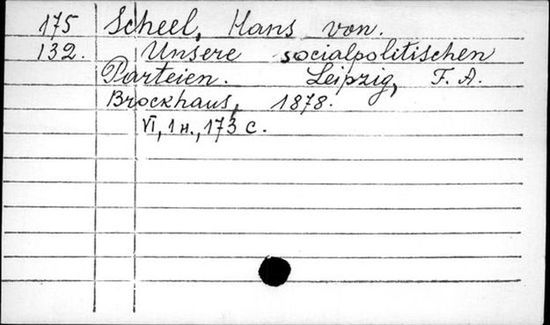 175 Scheel, Hans von.
132. Unsere socialpolitischen
Parteien. Leipzig, F. A.
Brockhaus, 1878.
VI, 1 н., 173 с.